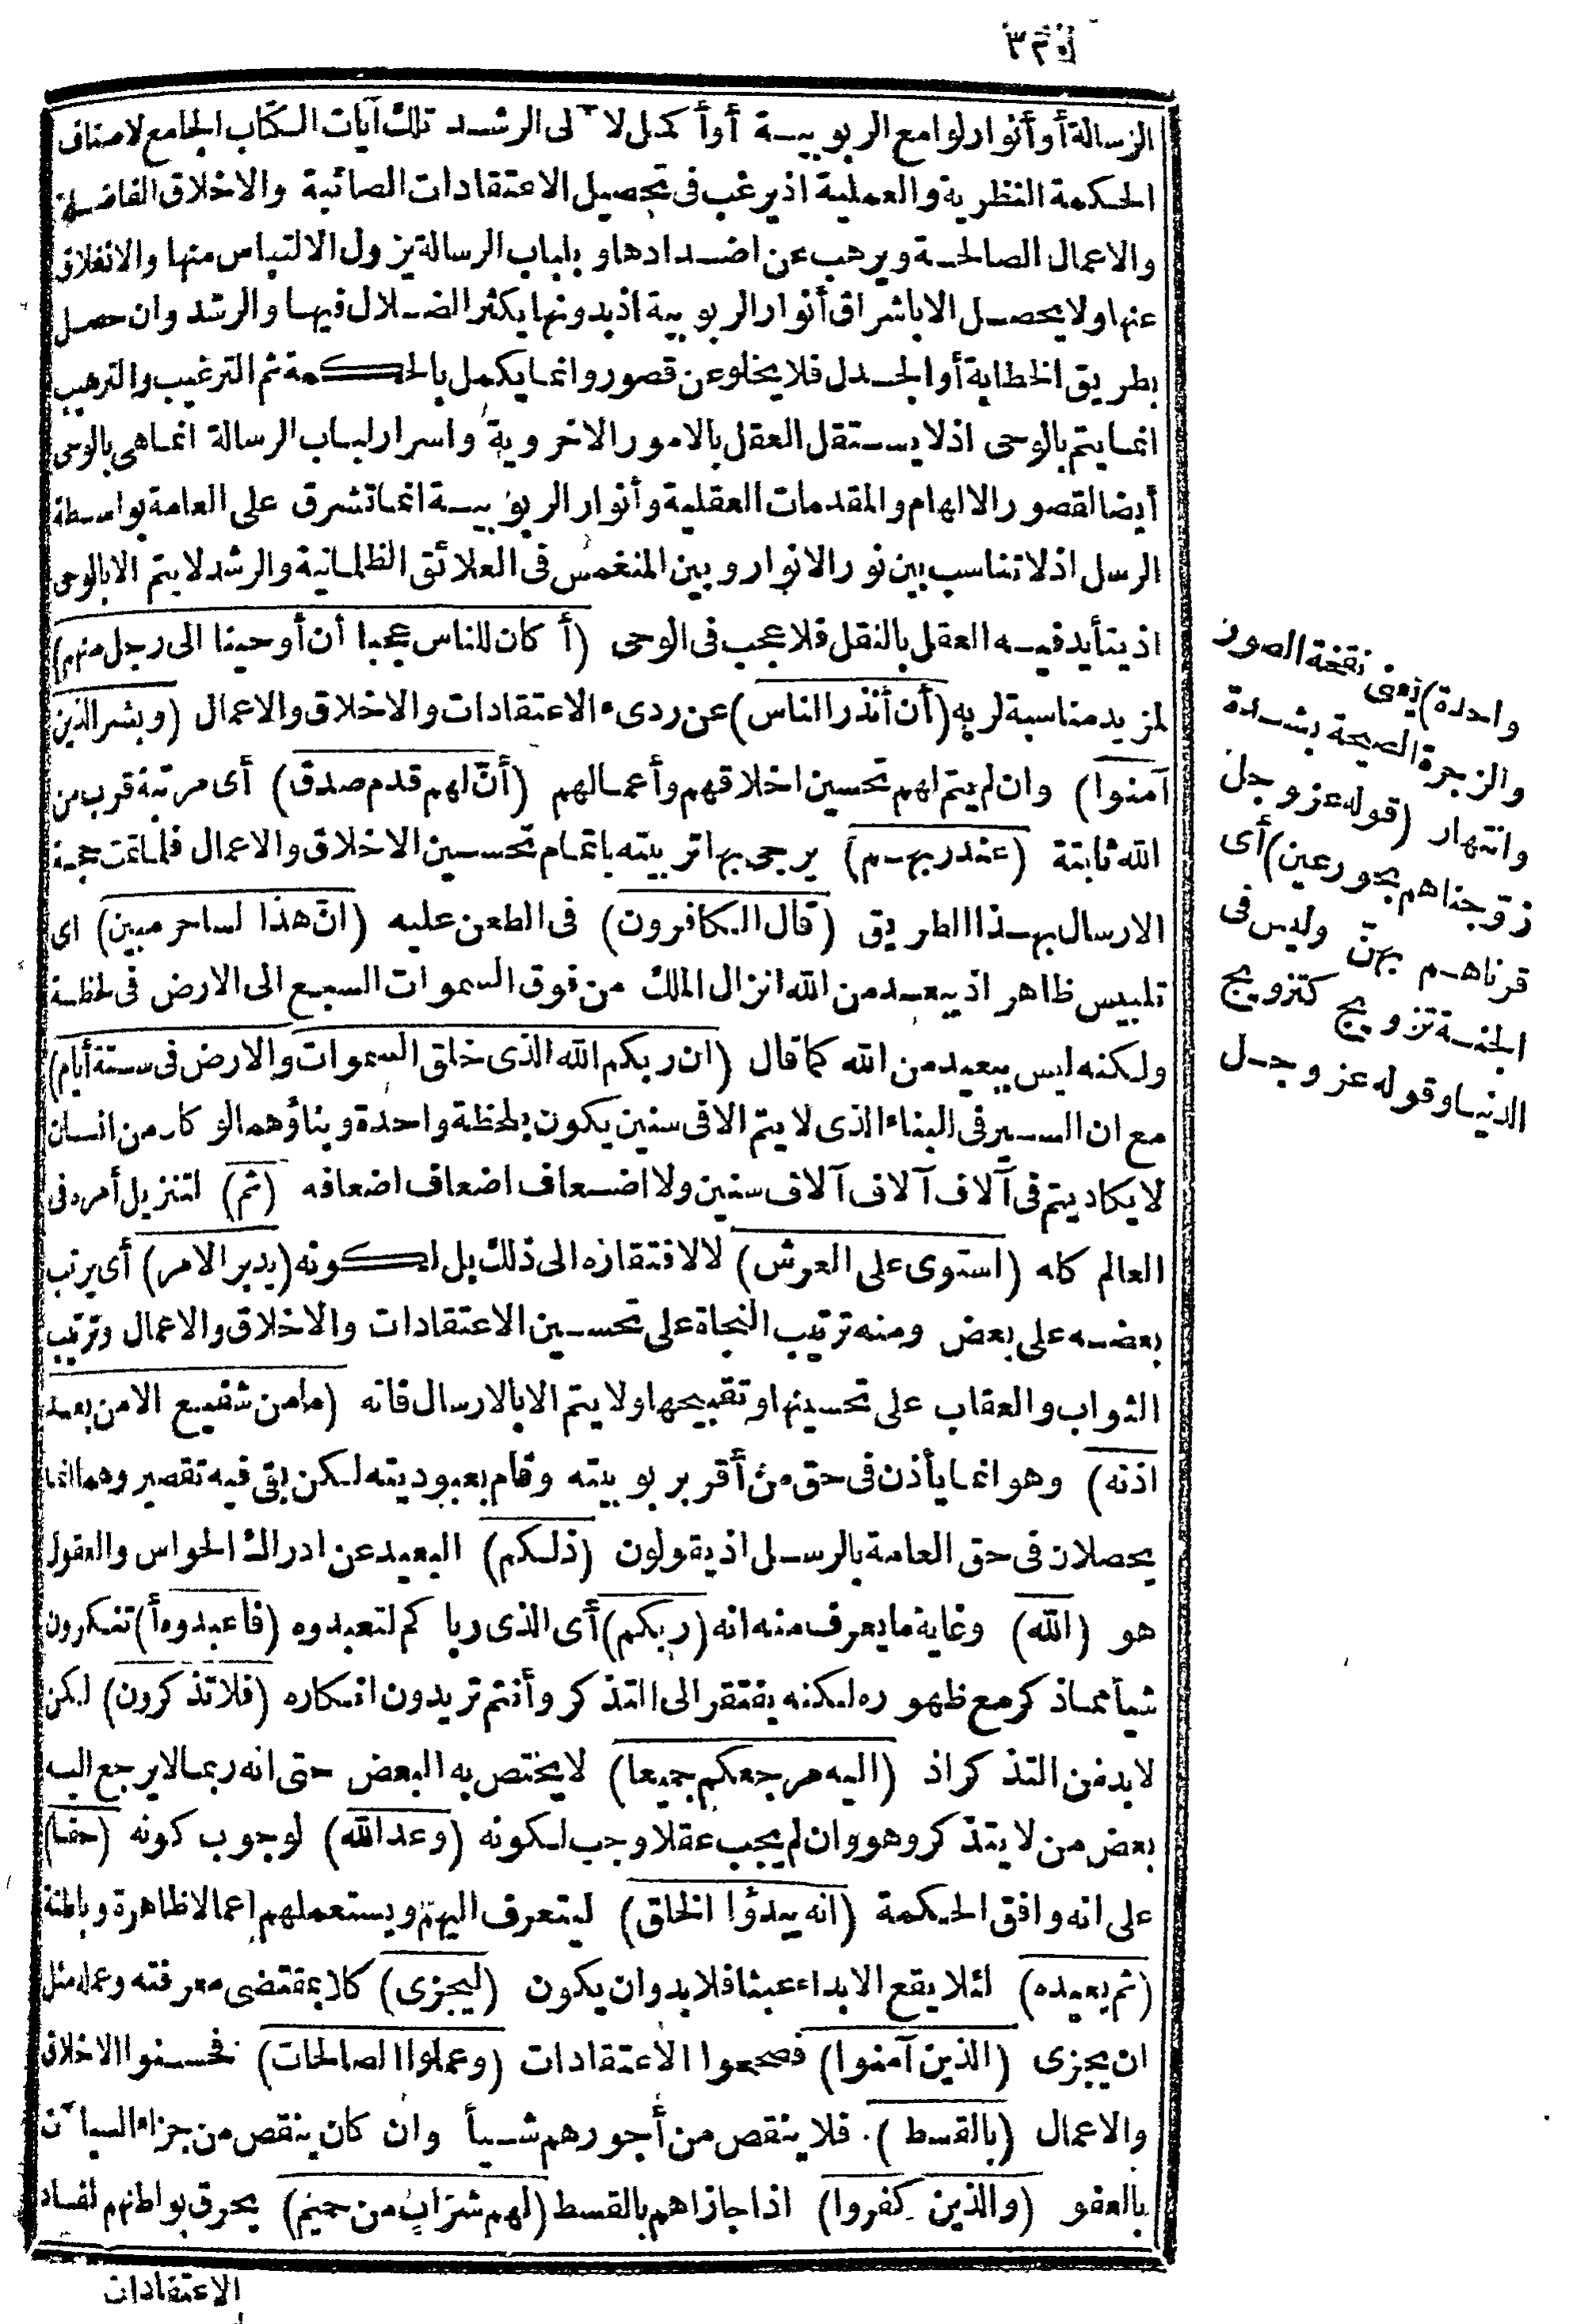 الرسالة أو أنوار لوامع الربوبية أو أكمل لآلى الرشد تلك آيات الكتاب الجامع لاصناف
الحكمة النظرية والعملية اذ يرغب فى تحصيل الاعتقادات الصائبة والاخلاق الفاضلة
والاعمال الصالحة ويرهب عن اضدادها وبلباب الرسالة يزول الالتباس منها والانغلاق
عنها ولا يحصل الا باشراق أنوار الربوبية اذ بدونها يكثر الضلال فيها والرشد وان حصل
بطريق الخطابة أو الجدل فلا يخلو عن قصور وانما يكمل بالحكمة ثم الترغيب والترهيب
انما يتم بالوحى اذ لا يستقل العقل بالامور الاخروية واسرار لباب الرسالة انما هى بالوحى
أيضا لقصور الالهام والمقدمات العقلية وأنوار الربوبية انما تشرق على العامة بواسطة
الرسل اذ لا تناسب بين نور الانوار وبين المنغمس فى العلائق الظلمانية والرشد لا يتم الا بالوحى
اذ يتأيد فيه العقل بالنقل فلا عجب فى الوحى (أ كان للناس عجبا أن أوحينا الى رجل منهم)
لمزيد مناسبة لربه (أن أنذر الناس) عن ردىء الاعتقادات والاخلاق والاعمال (وبشر الذين
آمنوا) وان لم يتم لهم تحسين اخلاقهم وأعمالهم (أنّ لهم قدم صدق) أى مرتبة قرب من
الله ثابتة (عند ربهم) يرجى بها تربيته باتمام تحسين الاخلاق والاعمال فلما تمت حجة
الارسال بهذا الطريق (قال الكافرون) فى الطعن عليه (انّ هذا لساحر مبين) اى
تلبيس ظاهر اذ يبعد من الله انزال الملك من فوق السموات السبع الى الارض فى لحظة
ولكنه ليس ببعيد من الله كما قال (ان ربكم الله الذى خلق السموات والارض فى ستة أيام)
مع ان السير فى البناء الذى لا يتم الا فى سنين يكون بلحظة واحدة وبناؤهما لو كان من انسان
لا يكاد يتم فى آلاف آلاف سنين ولا اضعاف اضعاف اضعافه (ثم) لتنزيل أمره فى
العالم كله (استوى على العرش) لا لافتقاره الى ذلك بل لكونه (يدبر الامر) أى يرتب
بعضه على بعض ومنه ترتيب النجاة على تحسين الاعتقادات والاخلاق والاعمال وترتيب
الثواب والعقاب على تحسينها وتقبيحها ولا يتم الا بالارسال فانه (ما من شفيع الا من بعد
اذنه) وهو انما يأذن فى حق من أقر بربوبيته وقام بعبوديته لكن بقى فيه تقصير وهما انما
يحصلان فى حق العامة بالرسل اذ يقولون (ذلكم) البعيد عن ادراك الحواس والعقول
هو (الله) وغاية ما يعرف منه انه (ربكم) أى الذى رباكم لتعبدوه (فاعبدوه أ) تنكرون
شيأ مما ذكر مع ظهوره لكنه يفتقر الى التذكر وأنتم تريدون انكاره (فلا تذكرون) لكن
لا بد من التذكر اذ (اليه مرجعكم جميعا) لا يختص به البعض حتى انه ربما لا يرجع اليه
بعض من لا يتذكر وهو وان لم يجب عقلا وجب لكونه (وعد الله) لوجوب كونه (حقا)
على انه وافق الحكمة (انه يبدؤا الخلق) ليتعرف اليهم ويستعملهم اعمالا ظاهرة وباطنة
(ثم يعيده) لئلا يقع الابداء عبثا فلا بد وان يكون (ليجزى) كلا بمقتضى معرفته وعمله مثل
ان يجزى (الذين آمنوا) فصححوا الاعتقادات (وعملوا الصالحات) فحسنوا الاخلاق
والاعمال (بالقسط) فلا ينقص من أجورهم شيأ وان كان ينقص من جزاء السيآت
بالعفو (والذين كفروا) اذا جازاهم بالقسط (لهم شراب من حميم) يحرق بواطنهم لفساد
الاعتقادات
واحدة) يعنى نفخة الصور
والزجرة الصيحة بشدة
وانتهار (قوله عز وجل
زوّجناهم بحور عين) أى
قرناهم بهنّ وليس فى
الجنة تزويج كتزويج
الدنيا وقوله عز وجل